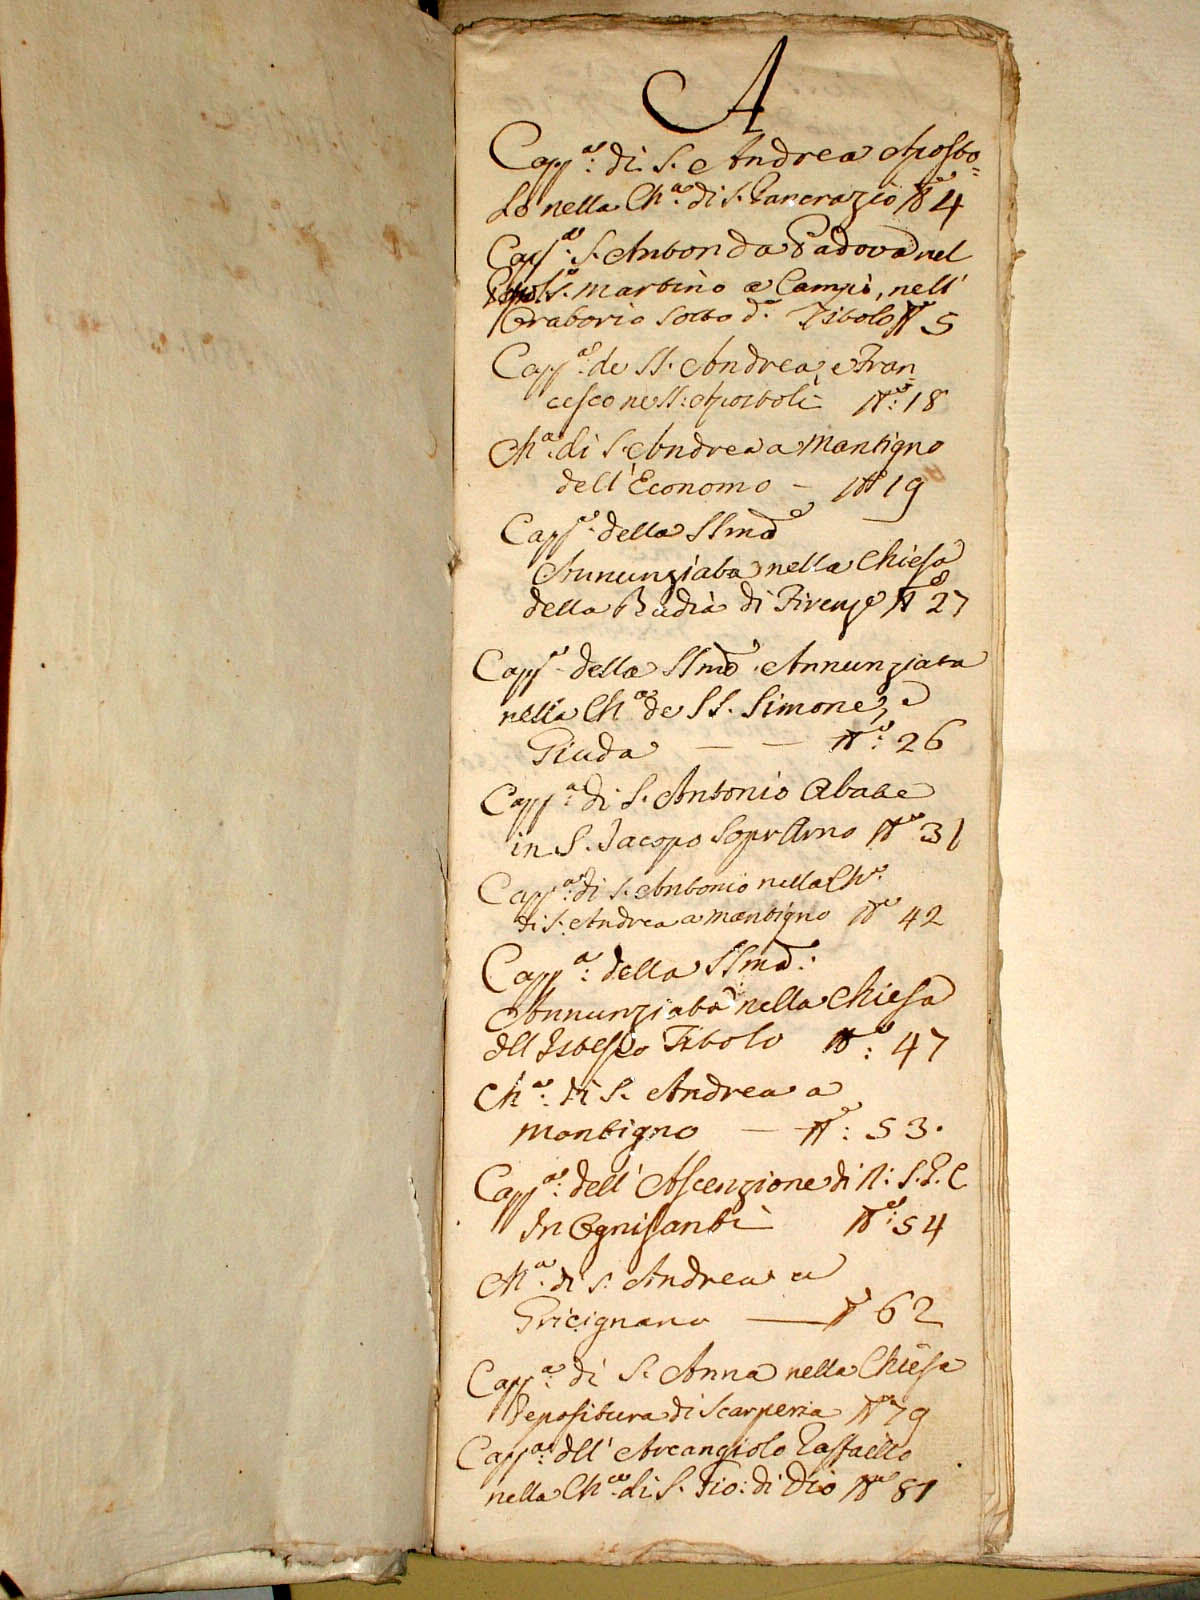 A
Capp.a di S. Andrea Aposto=
lo nella Ch.a di S. Pancrazio N.o 4
Capp.a S. Anton da Padova nel
S. Martino a Campi, nell'
Oratorio sotto d.o Titolo N.o 5
Capp.a de SS. Andrea, e Fran=
cesco ne SS: Apostoli N.o: 18
Ch.a di S. Andrea a Mantigno
dell'Economo - N.o 19
Capp.a della SSma
Annunziata nella Chiesa
della Badia di Firenze N.o 27
Capp.a della SSma Annunziata
nella Ch.a de SS. Simone, e
Giuda — — N.o: 26
Capp.a di S. Antonio Abate
in S. Jacopo Sopr'Arno N.o 31
Capp.a di S. Antonio nella Ch.a
di S. Andrea a Mantigno N.o 42
Capp.a: della SSma:
Annunziata nella Chiesa
dell Istesso Titolo N.o: 47
Ch.a: di S. Andrea a
Mantigno — N.o: 53.
Capp.a: dell'Ascenzione di N: S. G. C
In Ognisanti N.o: 54
Ch.a di S. Andrea a
Gricignano — N.o 62
Capp.a: di S. Anna nella Chiesa
Prepositura di Scarperia N.o 79
Capp.a: dell'Arcangiolo Raffaello
nella Ch.a di S. Gio: di Dio N.o 81